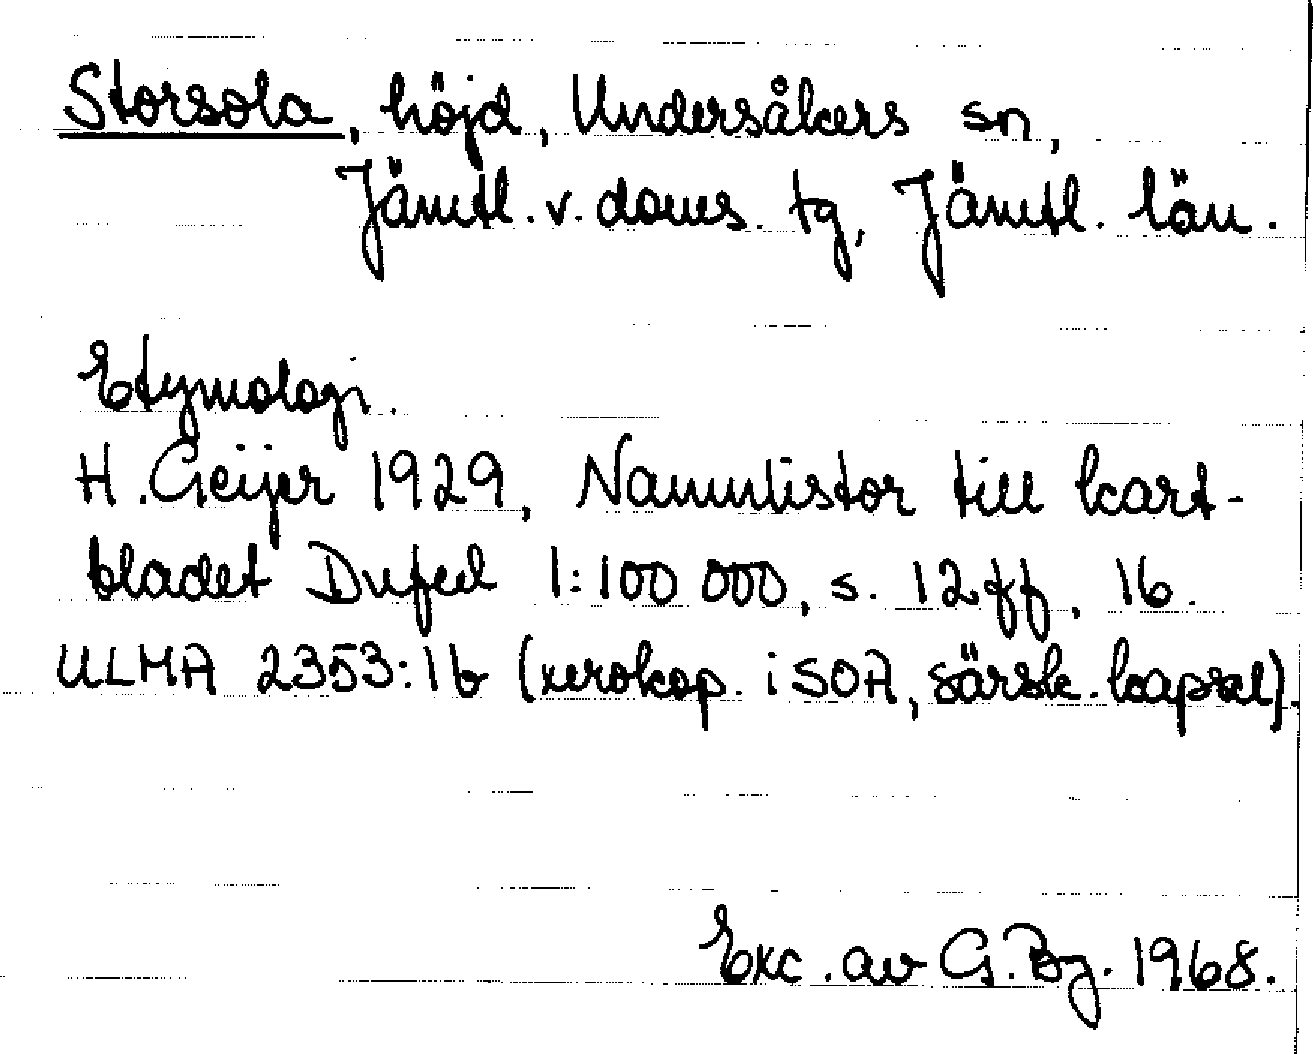 Storsola, höjd, Undersåkers sn,
Jämtl. v. doms. tg, Jämtl. län.
Etymologi.
H. Geijer 1929, Namnlistor till kart-
bladet Dufed 1:100 000, s. 12 ff, 16.
ULMA 2353:16 (xerokop. i SOA, särsk. kapsel).
Exc. av G. By. 1968.